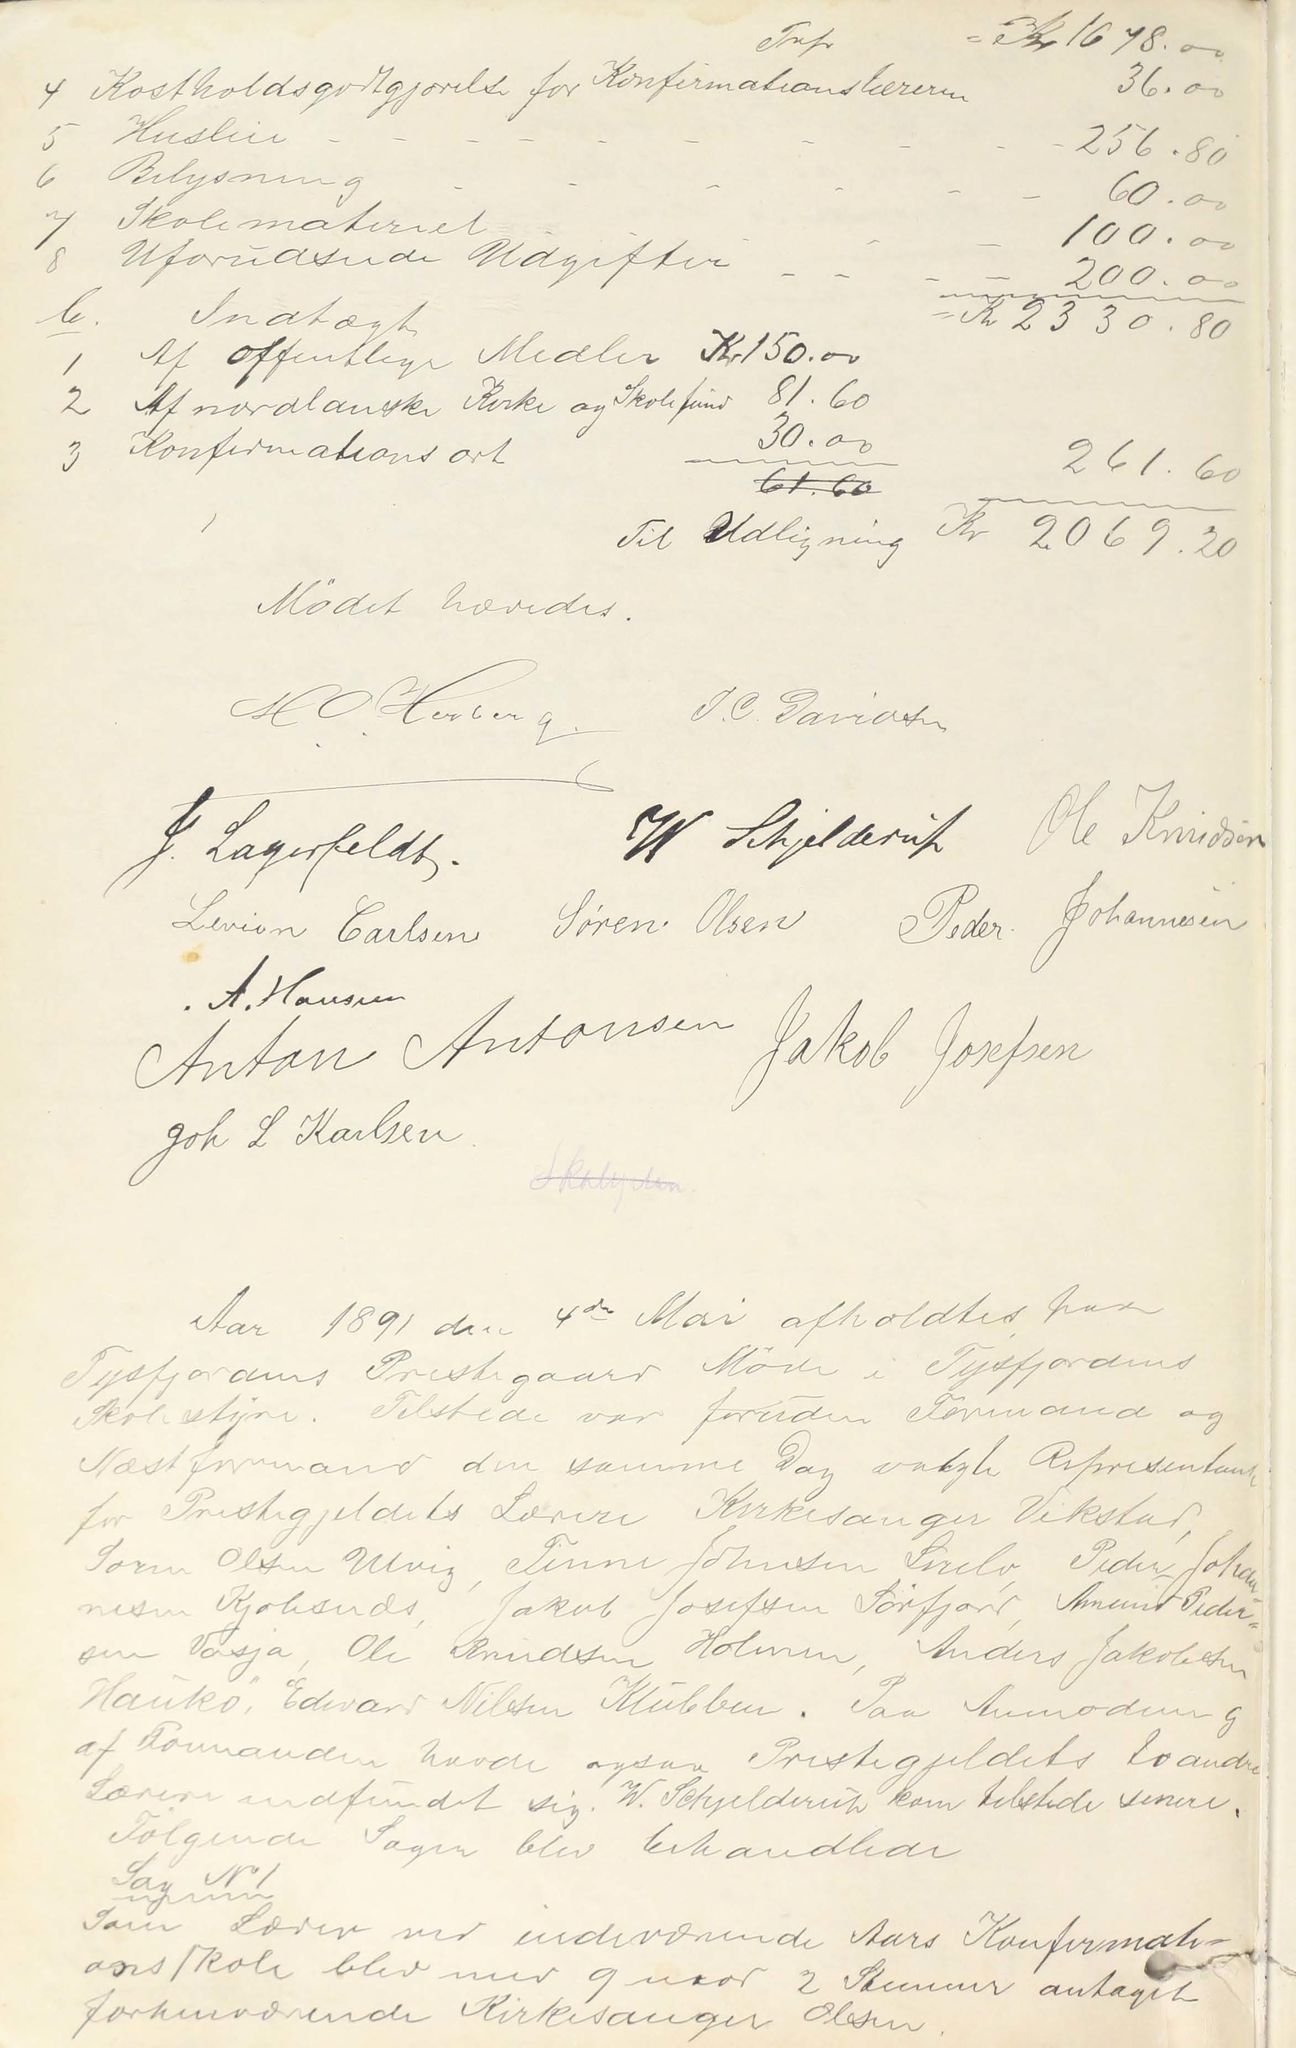 Trsp = Kr 1678.00
4 Kostholdsgodtgjørelse for Konfirmationslæreren 36.00
5 Husleie - - - - - - - - 256.80
6 Belysning - - - - - - 60.00
7 Skolemateriel - - - 100.00
8 Uforudseede Udgifter - - - - 200.00
= Kr 2330.80
b. Indtægt
1 Af offentlige Midler Kr 150.00
2 Af nordlanske Kirke og Skolefund 81.60
3 Konfirmationsort 30.00 261.60
61.60
Til Udligning Kr 2069.20
Mödet hævedes.
H O Hveberg. J. C. Davidsen
J. Lagerfeldt. W Schjelderup Ole Knudsen
Levion Carlsen Sören Olsen Peder Johannesen
A. Hansen
Anton Antonsen Jakob Josefsen
Joh L Karlsen
Aar 1891 den 4de Mai afholdtes paa
Tysfjordens Prestegaard Möde i Tysfjordens
Skolestyre. Tilstede var foruden Formand og
Næstformand den samme Dag valgte Representant
for Prestegjeldets Lærere Kirkesanger Vikstad,
Sören Olsen Ulvig, Tinne Johnsen Peder Johan-
nesen Kjobsnæs, Jakob Josefsen Sörfjord, Amund Peder-
sen Vasja, Ole Knudsen Holmen, Anders Jakobsen
Haukö, Edvard Nilsen Klubben. Paa Anmodning
af Formanden havde ogsaa Prestegjeldets to andre
Lærere indfundet sig. W. Schjelderup kom tilstede senere.
Fölgende Sager blev behandlede
Sag No 1
Som Lærer ved indeværende Aars Konfirmati-
onsskole blev med 9 mod 2 Stemmer antaget
forhenværende Kirkesanger Olsen.